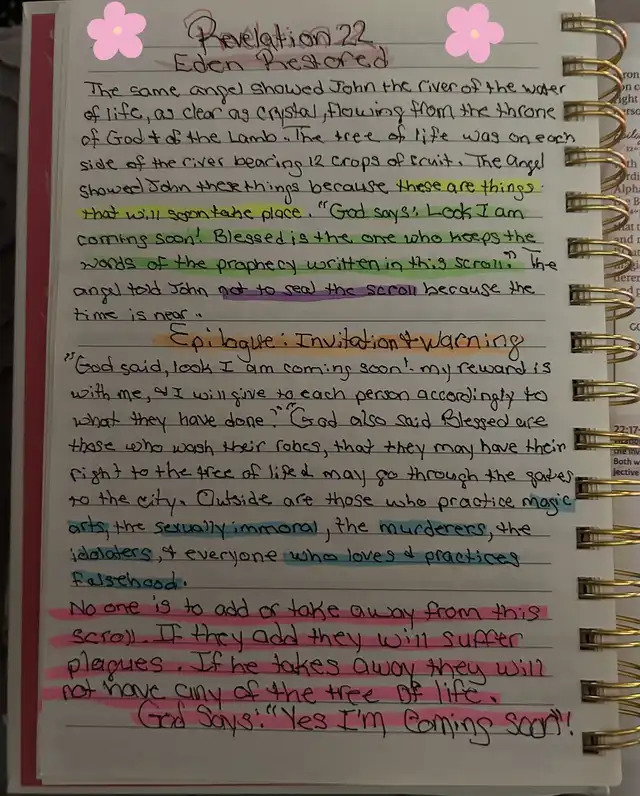 Revelation 22
Eden Restored
The same angel showed John the river of the water
of life, as clear as crystal, flowing from the throne
of God & of the Lamb. The tree of life was on each
side of the river bearing 12 crops of fruit. The Angel
showed John these things because these are things
that will soon take place. "God says: Look I am
coming soon! Blessed is the one who keeps the
words of the prophecy written in this scroll." The
angel told John not to seal the scroll because the
time is near.
Epilogue: Invitation & Warning
"God said, look I am coming soon! my reward is
with me, & I will give to each person accordingly to
what they have done." "God also said Blessed are
those who wash their robes, that they may have their
right to the tree of life & may go through the gates
to the city. Outside are those who practice magic
arts, the sexually immoral, the murderers, the
idolaters, & everyone who loves & practices
falsehood.
No one is to add or take away from this
scroll. If they add they will suffer
plagues. If he takes away they will
not have any of the tree of life.
God Says: "Yes I'm coming soon"!
22:17
Both w
jective